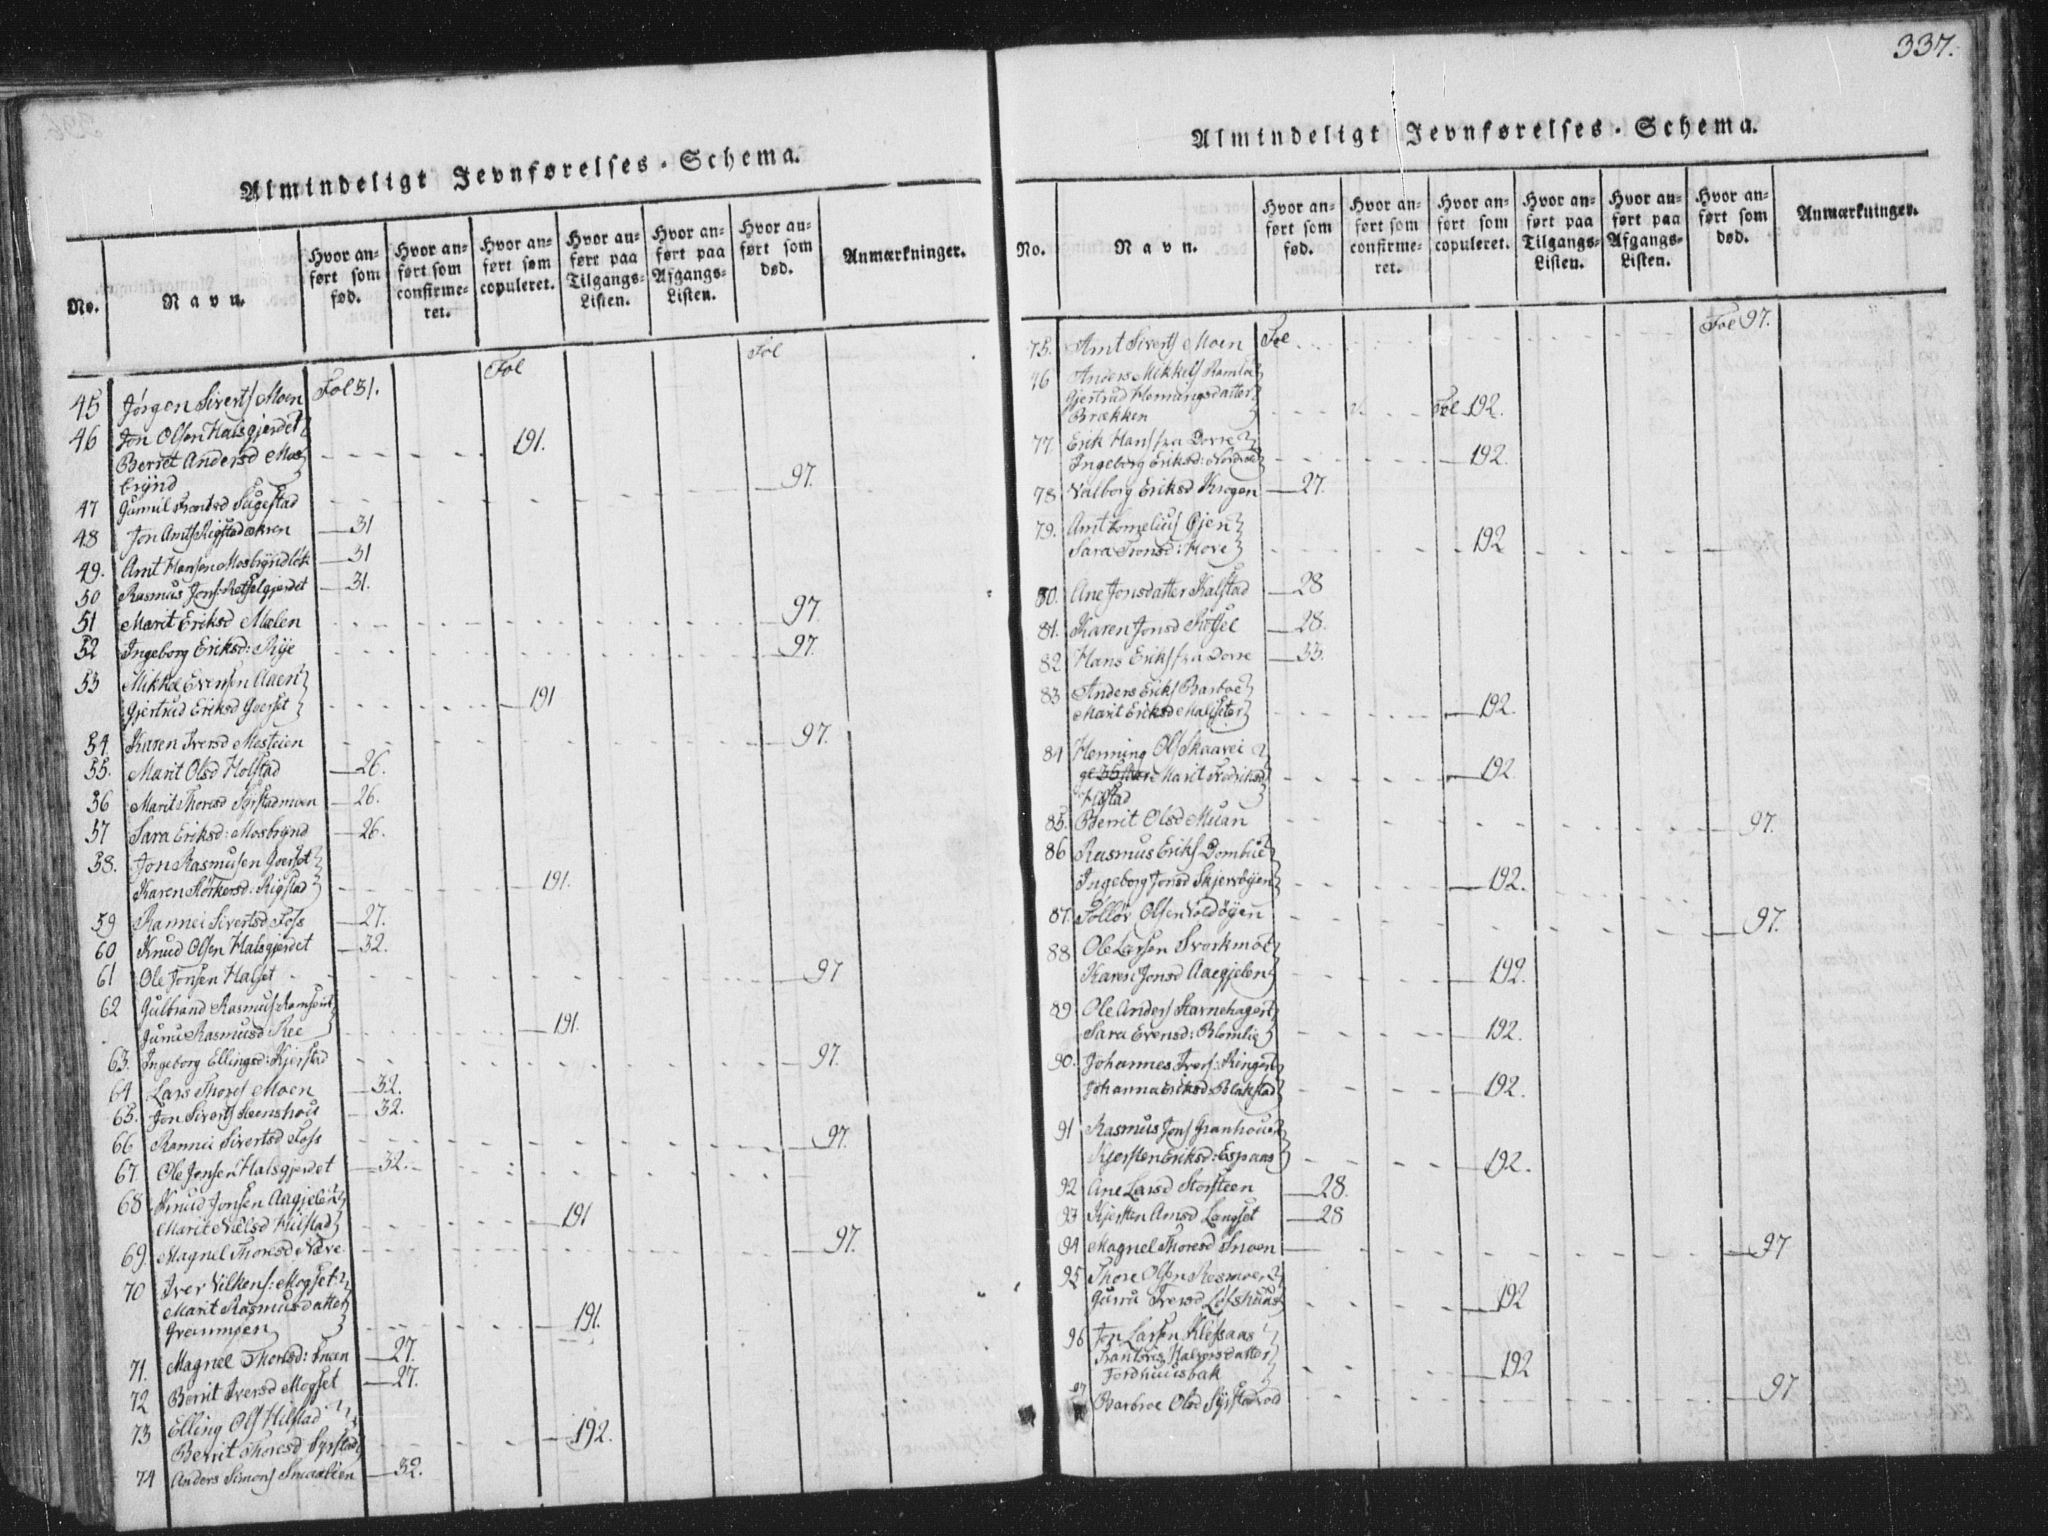 Almindeligt Jevnførelses-Schema.
No.
Navn.
Hvor anført som fød.
Hvor anført som confirmeret.
Hvor anført som copuleret.
Hvor anført paa Tilgangs-Listen.
Hvor anført paa Afgangs-Listen.
Hvor anført som død.
Anmærkninger.
Fol Fol
45 Jørgen Siverts Moen Fol 31.
46 Jon Olsen Halsgjerdet
Berret Andersd Mos 191.
brÿnd
47 97.
48 Jon Arnts 31
49. Arnt Hansen 31
50 Rasmus Jons 31.
51 Marit Eriksd Mælen 97.
52 Ingeborg Eriksd: Rÿe 97.
53 Mikkel Evensen Aaen
Gjertrud Eriksd Goeset 191
54. Karen Iversd 97.
55. Marit Olsd Holstad 26.
56 Marit Thoresd Syrstadmoen 26.
57 Sara Eriksd: Mosbrÿnd 26.
58. Jon Rasmusen Goeset
Karen Størkersd: Rigstad 191.
59 Rannei Sivertsd Foss 27.
60 Knud Olsen Halsgjerdet 32.
61 Ole Jonsen Halset 97
62 Gulbrand Rasmus
Guru Rasmusd: Ree 191.
63. Ingeborg Ellingsd: Kjerstad 97.
64 Lars Thores Moen 32.
65. Jon Siverts 32.
66 Rannei Sivertsd Foss 97.
67. Ole Jonsen Halsgjerdet 32.
68 Knud Jonsen Aagjelen
Marit Nilsd Hilstad 191
69. Magnel Thoresd Næve 97.
70 Iver Vilkens: Mogset
Marit Rasmusdatter
Grønmoen 191.
71. Magnel Thoresd: Snoen 27.
72 Berit Iversd Mogset 27.
73 Elling Ols Hilstad
Berrit Thoresd Syrstad 192.
74 Anders Simons 32.
337.
Almindeligt Jevnførelses-Schema.
No.
Navn.
Hvor anført som fød.
Hvor anført som confirmeret.
Hvor anført som copuleret.
Hvor anført paa Tilgangs-Listen.
Hvor anført paa Afgangs-Listen.
Hvor anført som død.
Anmærkninger.
75. Arnt Siverts Moen Fol Fol 97.
76 Anders Mikkels Ramlo
Gjertrud Henningsdatter
Brækken Fol 192.
77. Erik Hans fra Dovre
Ingeborg Eriksd: 192.
78 Valborg Eriksd Krogen 27.
79. Arnt Cornelius Øjen
Sara Tronsd: Hove 192
80. Ane Jonsdatter Kalstad 28
81. Karen Jonsd 28.
82 Hans Eriks fra Dovre 33.
83 Anders Eriks Barboe
Marit Eriksd 192.
84 Henning Ols Skaarvei
Marit Fredriksd 192
85. Berrit Olsd Muan 97.
86 Rasmus Eriks Dombue
Ingeborg Jonsd Skjervøÿen 192.
87. Tolløv Olsen Voldøÿen 97.
88 Ole Larsen Svorkmoe
Karen Jonsd Aagjelen 192.
89 Ole Anders Starnehagen
Sara Evensd: Blomlie 192.
90. Johannes Ivers:
Johanna Eriksd Blakstad 192.
91 Rasmus Jons
Kjersten Eriksd: Espaas 192.
92 Ane Larsd Storsteen 28.
93 Kjersten Arnsd Langset 28
94 Magnel Thoresd Snoen 97
95 Thore Olsen Resmoe
Gurru Iversd Løkshuus 192
96 Jon Larsen Klefsaas
Halvorsdatter 192
Fordhuusbak
97 Barbroe Olsd Syrstadvold 97